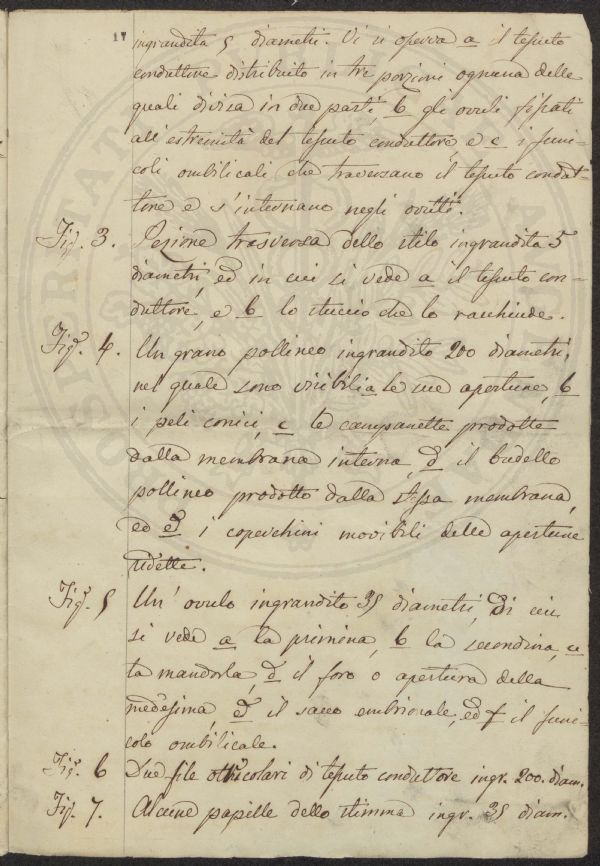 17
ingrandita 5 diametri. Vi si osserva a il tessuto
conduttore distribuito in tre porzioni ognuna delle
quali divisa in due parti, b gli ovuli fissati
all'estremità del tessuto conduttore, e c i funi-
coli ombilicali che traversano il tessuto condut-
tore e s'internano negli ovuli.
Fig. 3. Sezione trasversa dello stilo ingrandita 5
diametri, ed in cui si vede a il tessuto con-
duttore, e b lo stuccio che lo racchiude.
Fig. 4. Un grano pollineo ingrandito 200 diametri,
nel quale sono visibili a le sue aperture, b
i peli conici, c le campanette prodotte
dalla membrana interna, d il budello
pollineo prodotto dalla stessa membrana,
ed e i coperchini movibili delle aperture
sudette.
Fig. 5 Un' ovulo ingrandito 35 diametri, di cui
si vede a la primina, b la secondina, c
la mandorla, d il foro o apertura della
medesima, e il sacco embrionale, ed f il funi-
colo ombilicale.
Fig. 6 Due file otricolari di tessuto conduttore ingr. 200. diam.
Fig. 7. Alcune papille dello stimma ingr. 35 diam.